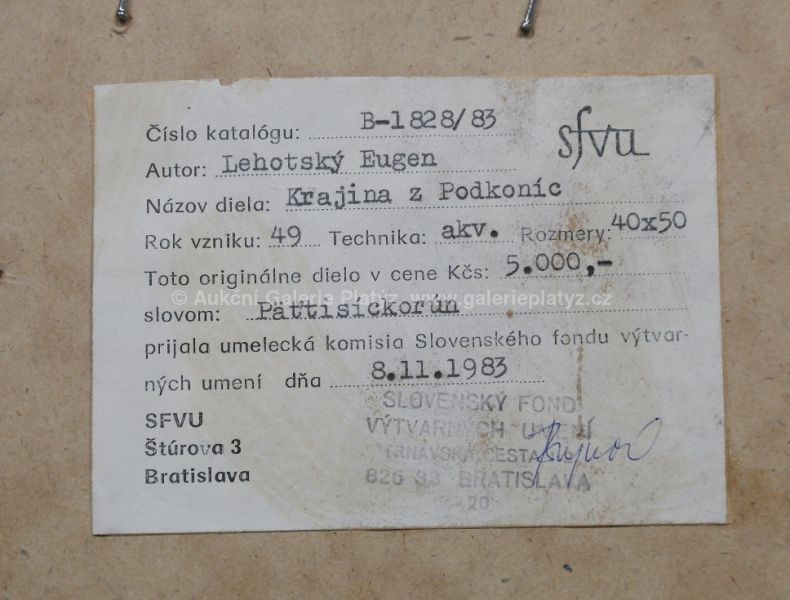 Číslo katalógu: B-1828/83
sfvu
Autor: Lehotský Eugen
Názov diela: Krajina z Podkoníc
Rok vzniku: 49 Technika: akv. Rozmery: 40x50
Toto originálne dielo v cene Kčs: 5.000,-
© Aukční Galerie Platýz www.galerieplatyz.cz
slovom: Päťtisíckorún
prijala umelecká komisia Slovenského fondu výtvar-
ných umení dňa 8.11.1983
SFVU
Štúrova 3
Bratislava
SLOVENSKÝ FOND
VÝTVARNÝCH UMENÍ
TRNAVSKÁ CESTA
826 33 BRATISLAVA
20